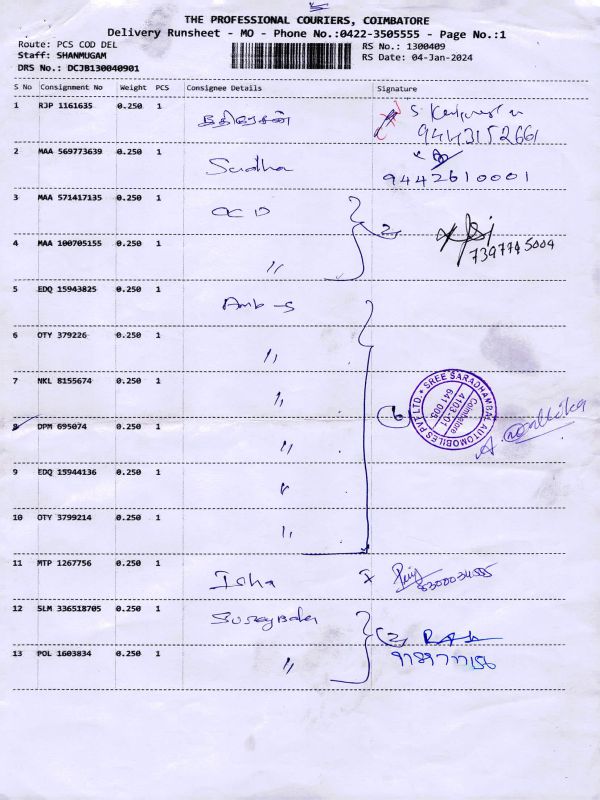 THE PROFESSIONAL COURIERS, COIMBATORE
Delivery Runsheet - MO - Phone No.:0422-3505555 - Page No.:1
Route: PCS COD DEL
RS No.: 1300409
Staff: SHANMUGAM
RS Date: 04-Jan-2024
DRS No.: DCJB130040901
S No Consignment No Weight PCS Consignee Details Signature
1 RJP 1161635 0.250 1
9443152661
2 MAA 569773639 0.250 1 Saradha
9442610001
3 MAA 571417135 0.250 1
4 MAA 100705155 0.250 1 "
2
7397745004
5 EDQ 15943825 0.250 1
6 OTY 379226 0.250 1 "
7 NKL 8155674 0.250 1 "
6
SREE SARADHAMBAL AUTOMOBILES PVT LTD.
Coimbatore
4103-01
641 005
8 DPM 695074 0.250 1 "
9 EDQ 15944136 0.250 1 "
10 OTY 3799214 0.250 1 "
11 MTP 1267756 0.250 1 Isha
12 SLM 336518705 0.250 1
2
13 POL 1603834 0.250 1 "